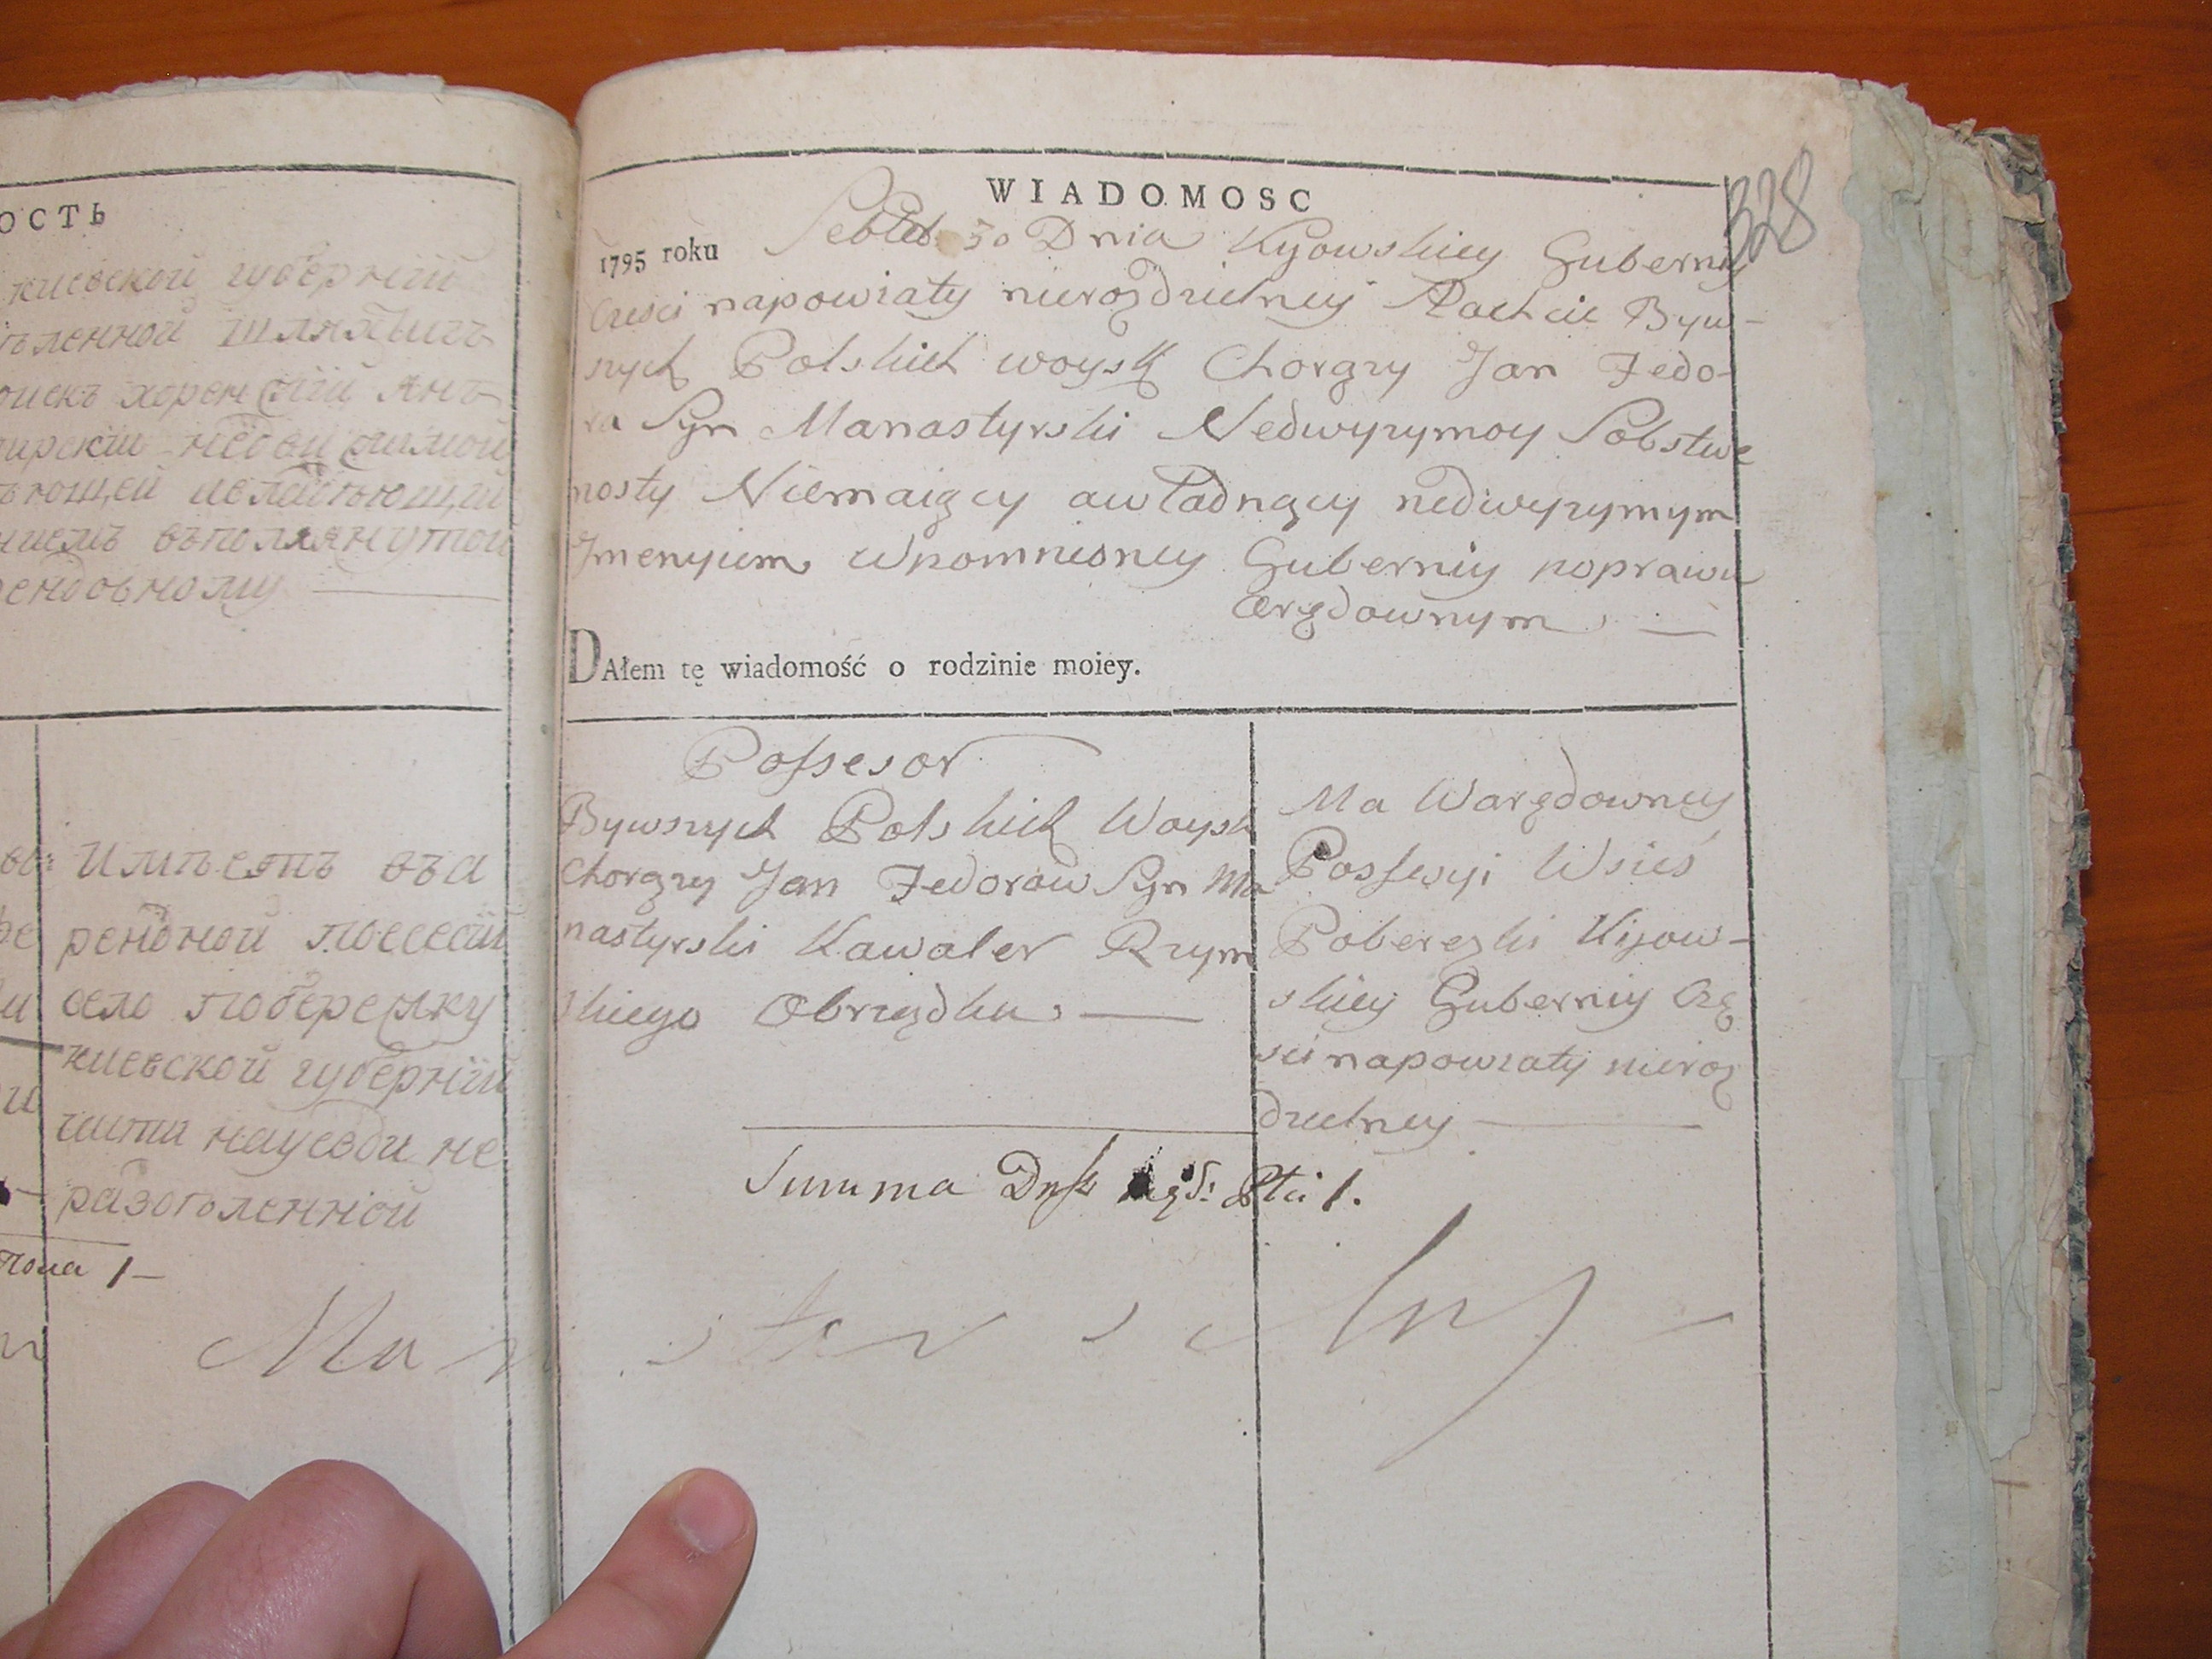 ОСТЬ
киевской губерний
шляхтичъ
хоренжій Янъ
недвижимой
въпомянутой
Имѣетъ въа
рендной посесiи
село побережку
киевской губерний
части науезди не
разделенной
1 —
328
WIADOMOSC
1795 roku Sebteb. 30 Dnia Kyowskiey Guberniy
Czesci napowiaty nierozdzielney Szlachcic Byw-
szych Polskich woysk Chorązy Jan Fedo-
ra Syn Manastyrski Nedwyzymoy Sobstwe
nosty Niemaiący awładnący nedwyzymym
Jmenyiem Wpomnioney Guberniy poprawu
Arędownym. —
DAłem tę wiadomość o rodzinie moiey.
Possesor
Bywszych Polskich Woysk
Chorązy Jan Fedorow Syn Ma
nastyrski Kawaler Rzym
skiego Obrządku. —
Ma Warędowney
Possesyi Wsieś
Poberezki Kijow-
skiey Guberniy Czę
sci napowiaty nieroz
dzielney —
Summa Płci 1.